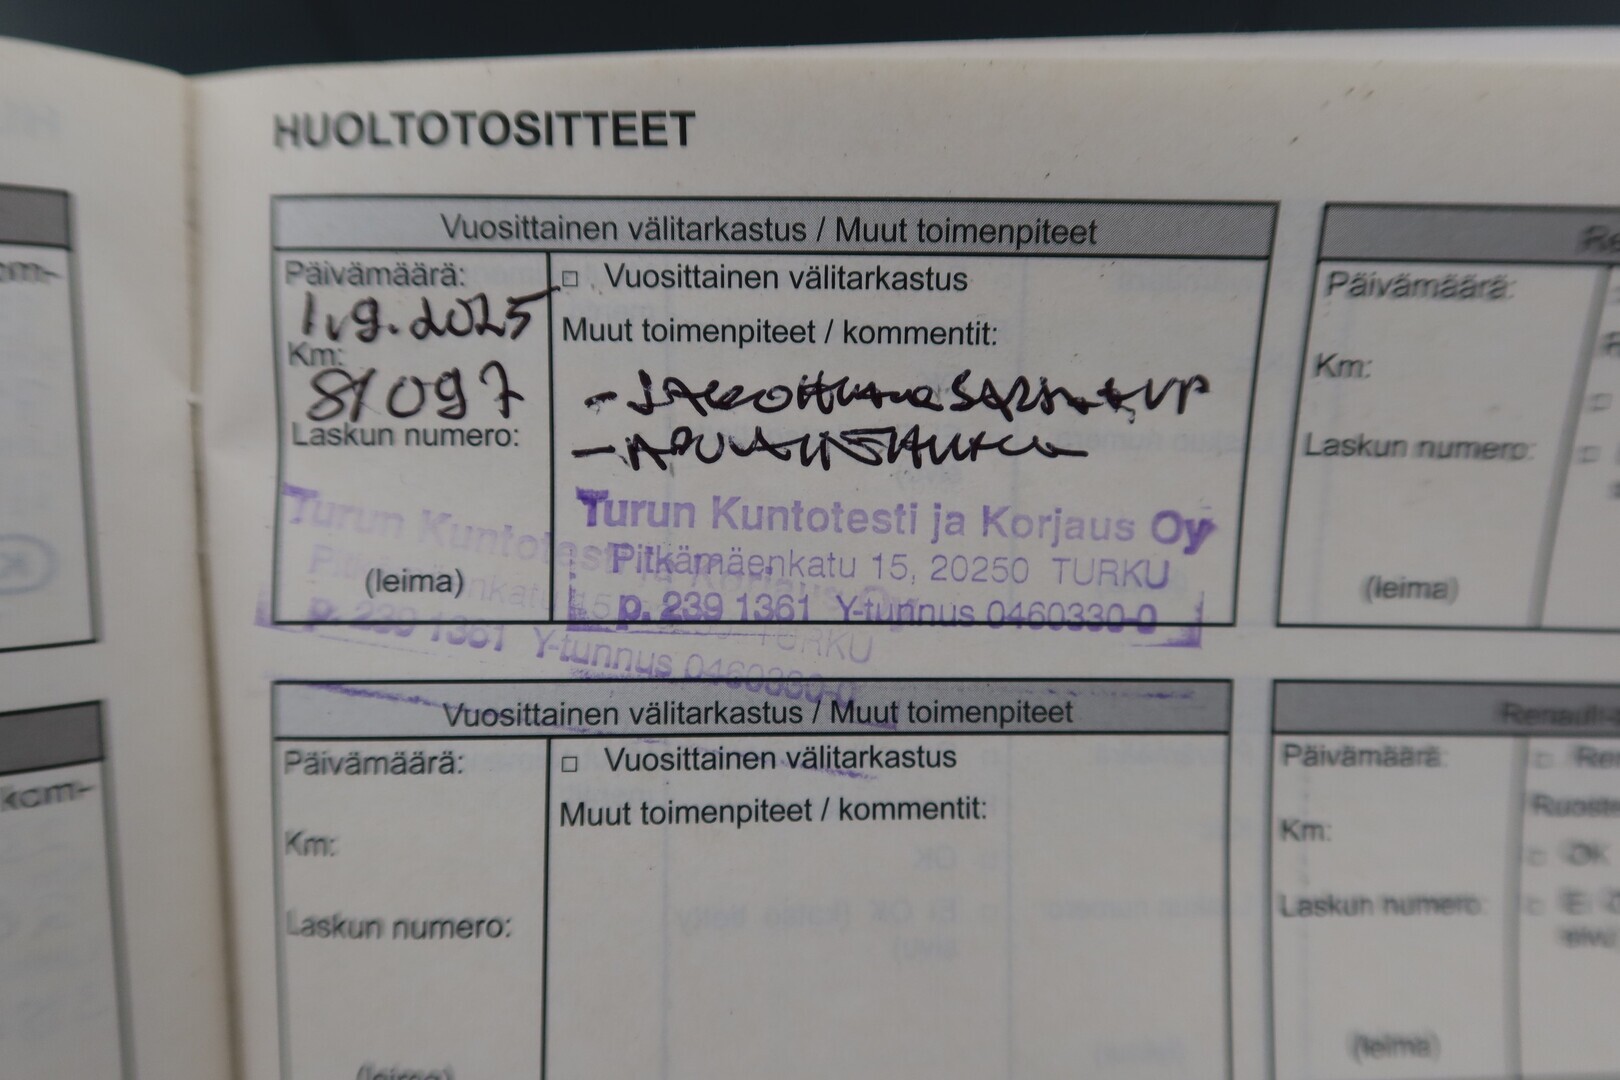 HUOLTOTOSITTEET
Vuosittainen välitarkastus / Muut toimenpiteet
Päivämäärä:
1.9.2025
Km:
81097
Laskun numero:
(leima)
□ Vuosittainen välitarkastus
Muut toimenpiteet / kommentit:
- JAKOHIHNASARJA + VP
- APULAITEHIHNA
Turun Kuntotesti ja Korjaus Oy
Pitkämäenkatu 15, 20250 TURKU
p. 239 1361 Y-tunnus 0460330-0
Turun Kuntotesti ja Korjaus Oy
Pitkämäenkatu 15, 20250 TURKU
p. 239 1361 Y-tunnus 0460330-0
Päivämäärä:
Km:
Laskun numero:
(leima)
Vuosittainen välitarkastus / Muut toimenpiteet
Päivämäärä:
Km:
Laskun numero:
(leima)
□ Vuosittainen välitarkastus
Muut toimenpiteet / kommentit:
Päivämäärä:
Km:
Laskun numero:
(leima)
OK